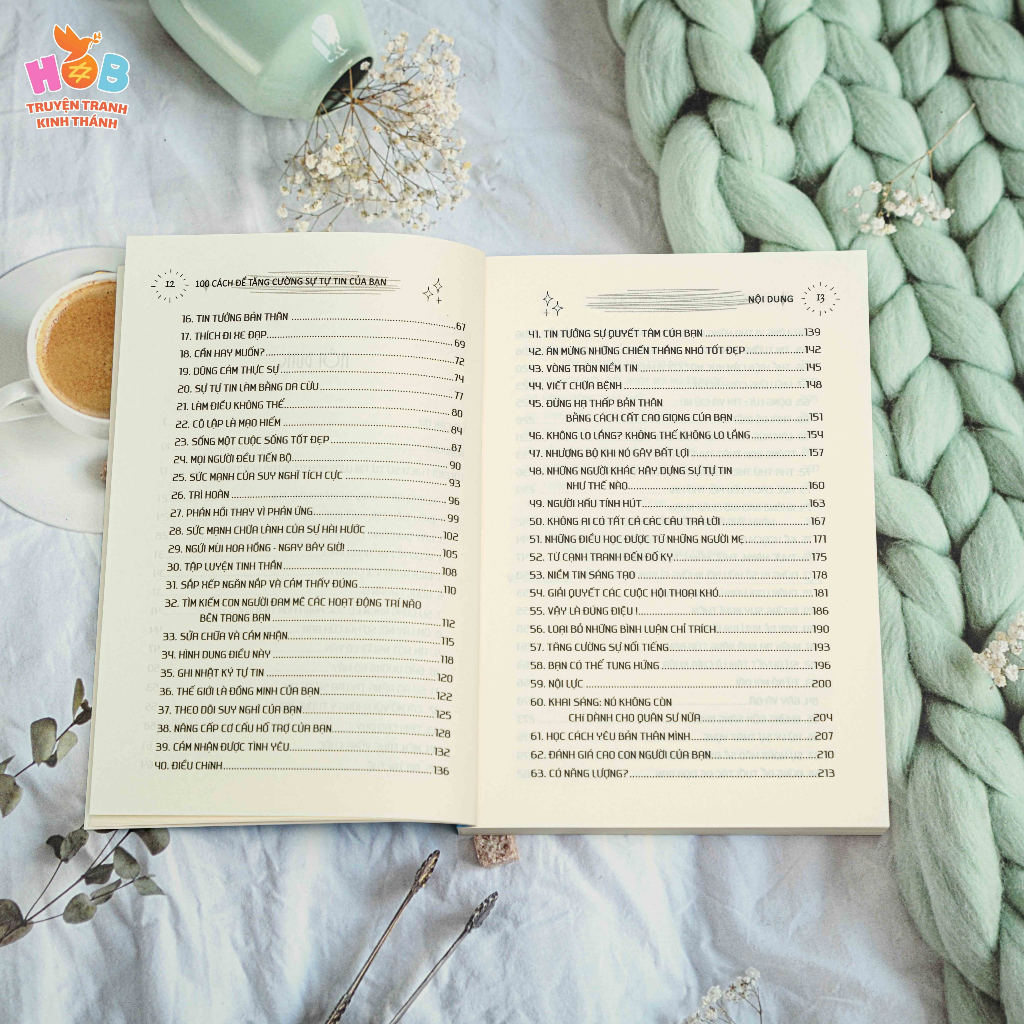 HOB
TRUYỆN TRANH
KINH THÁNH
12 100 CÁCH ĐỂ TĂNG CƯỜNG SỰ TỰ TIN CỦA BẠN
16. TIN TƯỞNG BẢN THÂN 67
17. THÍCH ĐI XE ĐẠP 69
18. CẦN HAY MUỐN? 72
19. DŨNG CẢM THỰC SỰ 74
20. SỰ TỰ TIN LÀM BẰNG DA CỪU 77
21. LÀM ĐIỀU KHÔNG THỂ 80
22. CÔ LẬP LÀ MẠO HIỂM 84
23. SỐNG MỘT CUỘC SỐNG TỐT ĐẸP 87
24. MỌI NGƯỜI ĐỀU TIẾN BỘ 90
25. SỨC MẠNH CỦA SUY NGHĨ TÍCH CỰC 93
26. TRÌ HOÃN 96
27. PHẢN HỒI THAY VÌ PHẢN ỨNG 99
28. SỨC MẠNH CHỮA LÀNH CỦA SỰ HÀI HƯỚC 102
29. NGỬI MÙI HOA HỒNG - NGAY BÂY GIỜ! 105
30. TẬP LUYỆN TINH THẦN 108
31. SẮP XẾP NGĂN NẮP VÀ CẢM THẤY ĐÚNG 110
32. TÌM KIẾM CON NGƯỜI ĐAM MÊ CÁC HOẠT ĐỘNG TRÍ NÃO
BÊN TRONG BẠN 112
33. SỬA CHỮA VÀ CẢM NHẬN 115
34. HÌNH DUNG ĐIỀU NÀY 118
35. GHI NHẬT KÝ TỰ TIN 120
36. THẾ GIỚI LÀ ĐỒNG MINH CỦA BẠN 122
37. THEO DÕI SUY NGHĨ CỦA BẠN 125
38. NÂNG CẤP CƠ CẤU HỖ TRỢ CỦA BẠN 128
39. CẢM NHẬN ĐƯỢC TÌNH YÊU 132
40. ĐIỀU CHỈNH 136
NỘI DUNG 13
41. TIN TƯỞNG SỰ QUYẾT TÂM CỦA BẠN 139
42. ĂN MỪNG NHỮNG CHIẾN THẮNG NHỎ TỐT ĐẸP 142
43. VÒNG TRÒN NIỀM TIN 145
44. VIẾT CHỮA BỆNH 148
45. ĐỪNG HẠ THẤP BẢN THÂN
BẰNG CÁCH CẤT CAO GIỌNG CỦA BẠN 151
46. KHÔNG LO LẮNG? KHÔNG THỂ KHÔNG LO LẮNG 154
47. NHƯỢNG BỘ KHI NÓ GÂY BẤT LỢI 157
48. NHỮNG NGƯỜI KHÁC XÂY DỰNG SỰ TỰ TIN
NHƯ THẾ NÀO 160
49. NGƯỜI XẤU TÍNH HÚT 163
50. KHÔNG AI CÓ TẤT CẢ CÁC CÂU TRẢ LỜI 167
51. NHỮNG ĐIỀU HỌC ĐƯỢC TỪ NHỮNG NGƯỜI MẸ 171
52. TỪ CẠNH TRANH ĐẾN ĐỐ KỴ 175
53. NIỀM TIN SÁNG TẠO 178
54. GIẢI QUYẾT CÁC CUỘC HỘI THOẠI KHÓ 181
55. VẬY LÀ ĐÚNG ĐIỆU ! 186
56. LOẠI BỎ NHỮNG BÌNH LUẬN CHỈ TRÍCH 190
57. TĂNG CƯỜNG SỰ NỔI TIẾNG 193
58. BẠN CÓ THỂ TUNG HỨNG 196
59. NỘI LỰC 200
60. KHAI SÁNG: NÓ KHÔNG CÒN
CHỈ DÀNH CHO QUÂN SƯ NỮA 204
61. HỌC CÁCH YÊU BẢN THÂN MÌNH 207
62. ĐÁNH GIÁ CAO CON NGƯỜI CỦA BẠN 210
63. CÓ NĂNG LƯỢNG? 213